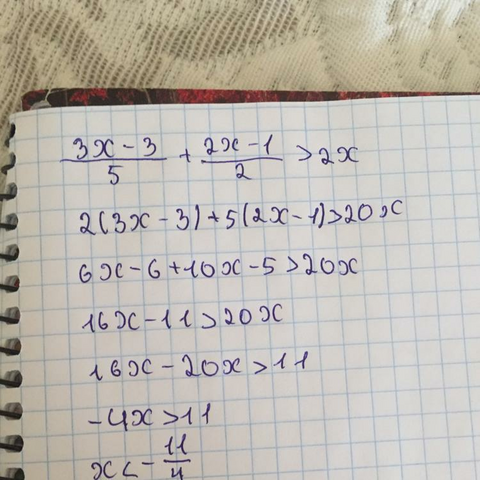 (3x - 3)/5 + (2x - 1)/2 > 2x
2(3x - 3) + 5(2x - 1) > 20x
6x - 6 + 10x - 5 > 20x
16x - 11 > 20x
16x - 20x > 11
-4x > 11
x < - 11/4